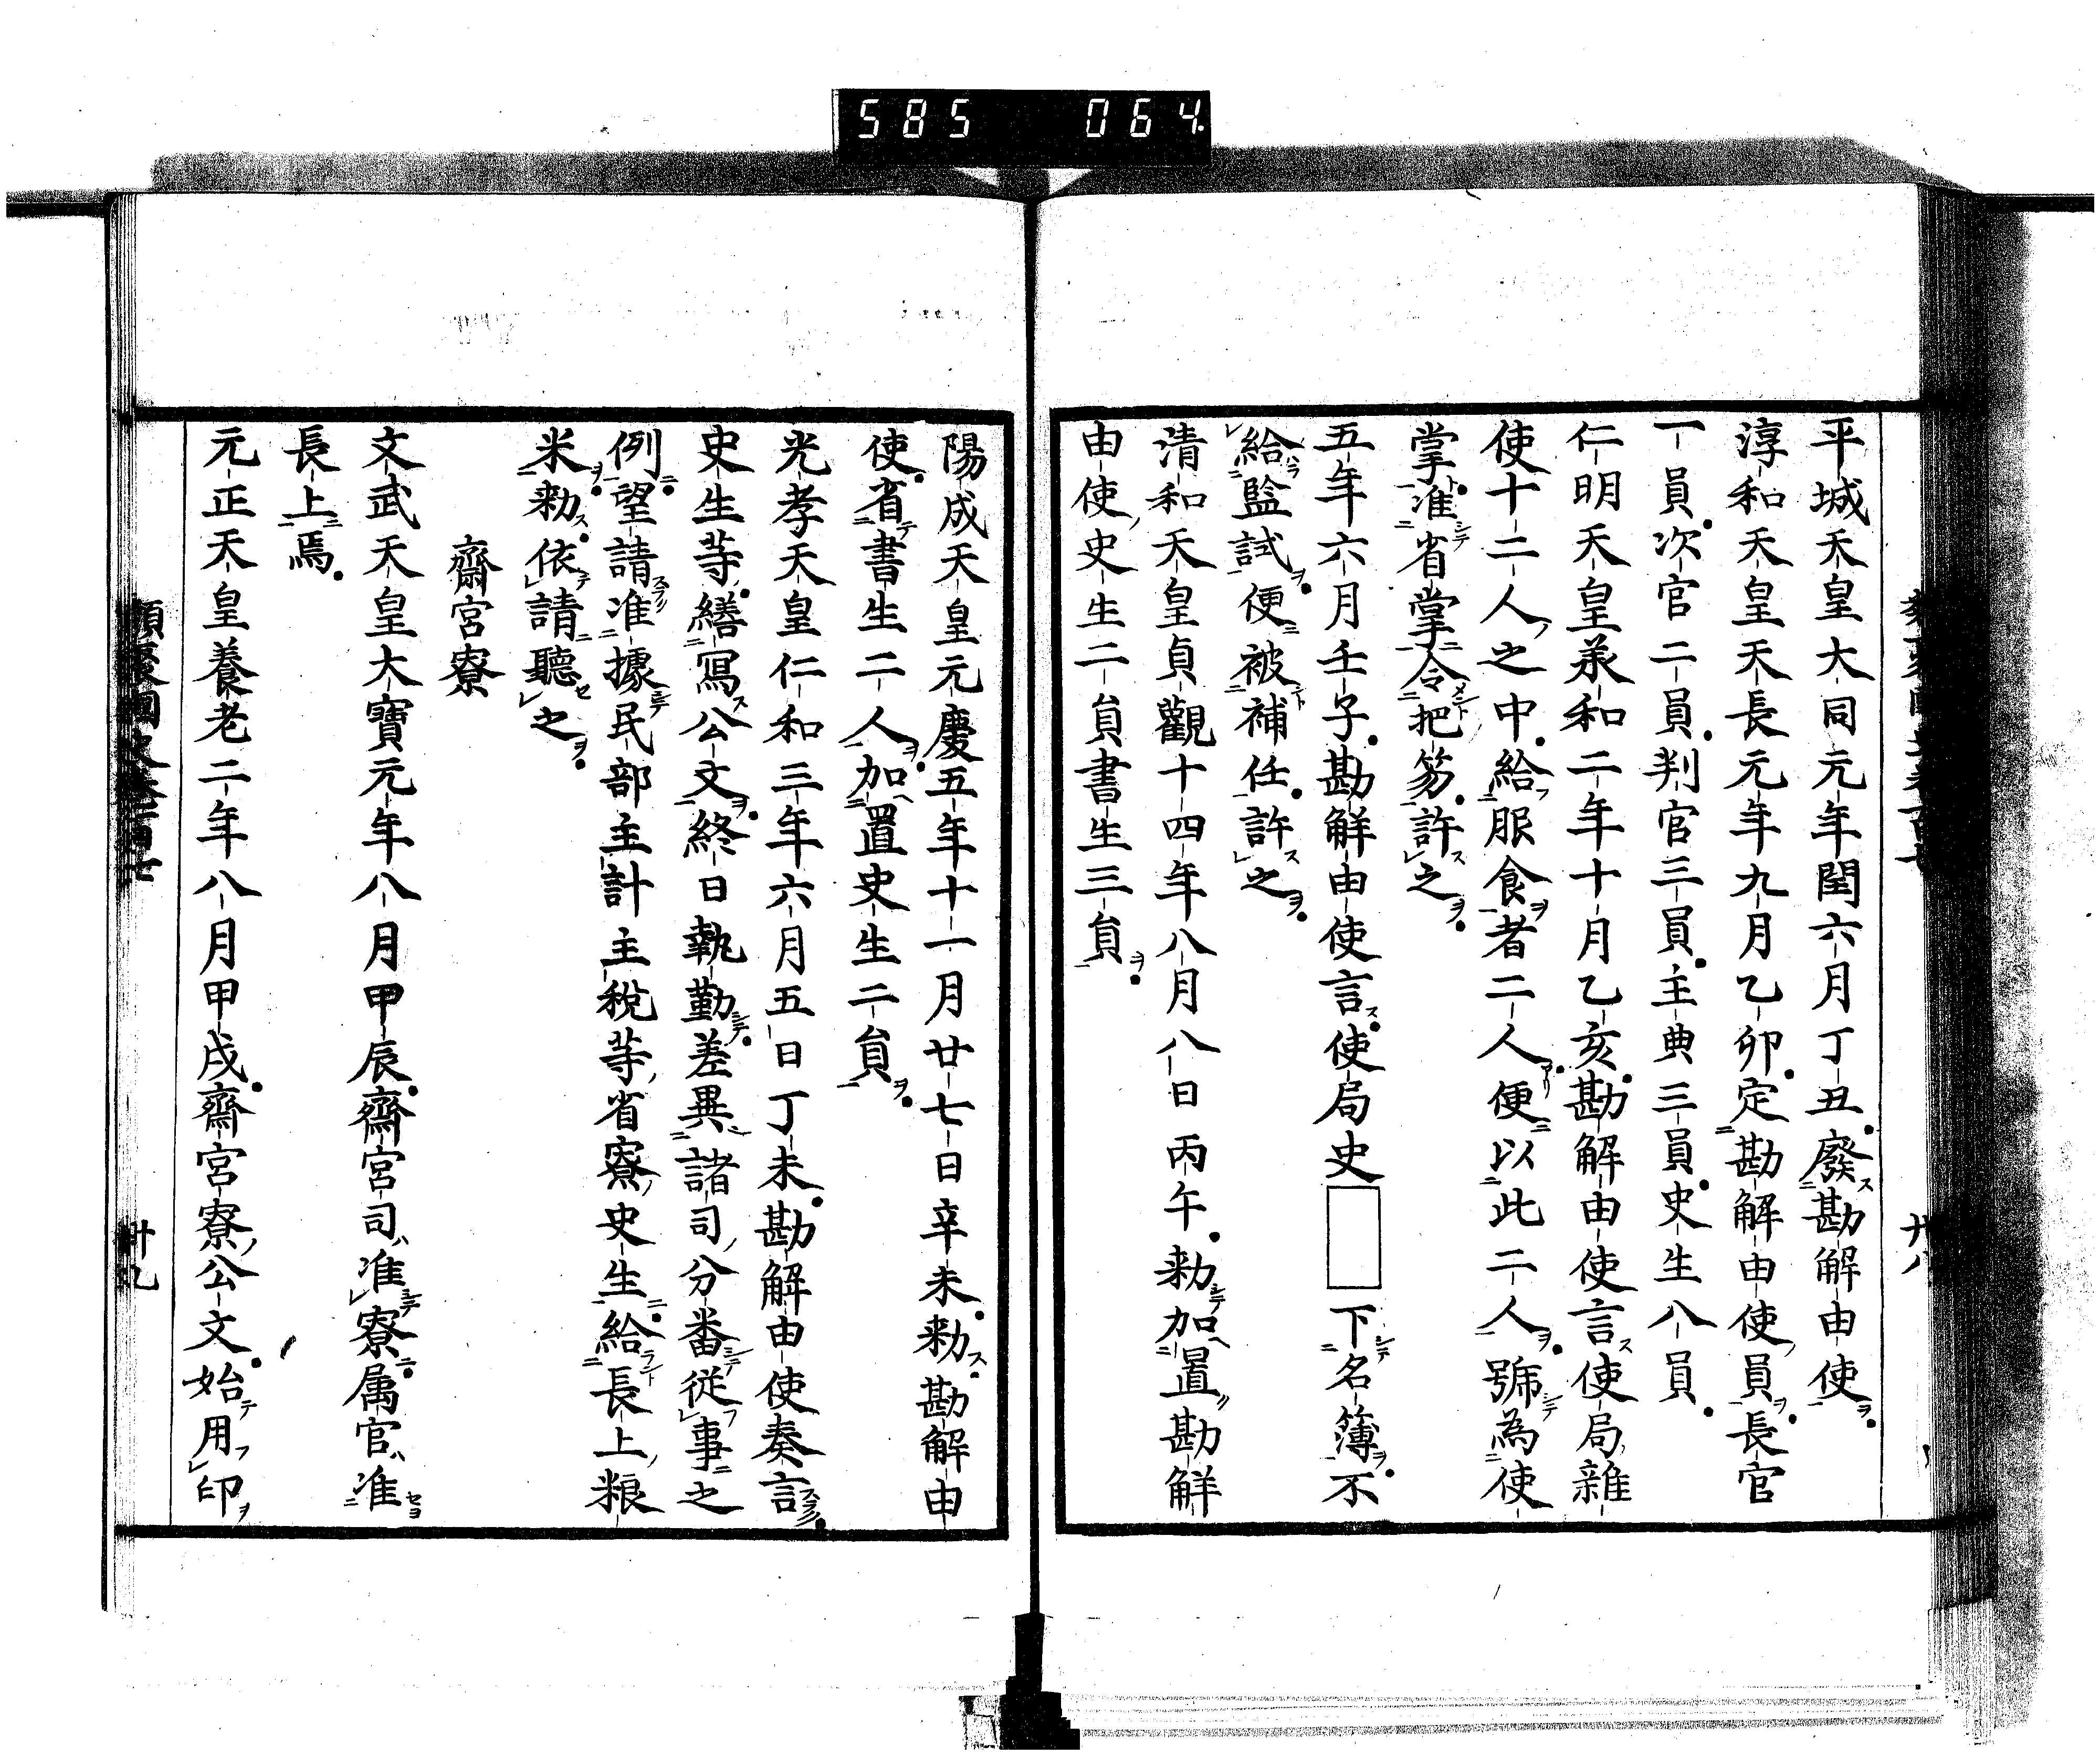 585 064
平城天皇大同元年閏六月丁丑廢勘解由使
淳和天皇天長元年九月乙卯定勘解由使員長官
一員次官二員判官三員主典三員史生八員
仁明天皇承和二年十月乙亥勘解由使言使局雜
使十二人之中給服食者二人便以此二人號為使
掌准省掌令把笏許之
五年六月壬子勘解由使言使局史□下名簿不
給監試便被補任許之
清和天皇貞觀十四年八月八日丙午勅加置勘解
由使史生二負書生三負
陽成天皇元慶五年十一月廿七日辛未勅勘解由
使省書生二人加置史生二負
光孝天皇仁和三年六月五日丁未勘解由使奏言
史生等繕寫公文終日執勤差異諸司分番從事之
例望請准據民部主計主稅等省寮史生給長上粮
米勅依請聽之
齋宮寮
文武天皇大寶元年八月甲辰齋宮司准寮属官准
長上焉
元正天皇養老二年八月甲戌齋宮寮公文始用印
類聚國史卷一百七